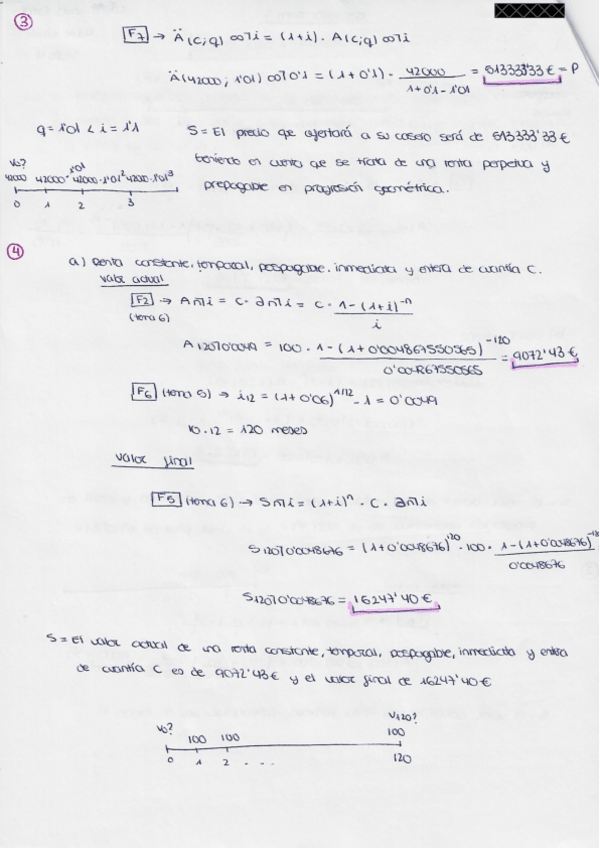 ③
F7 → Ä(c;q)∞⌉i = (1+i) · A(c;q)∞⌉i
Ä(42000; 1'01)∞⌉0'1 = (1+0'1) · 42000 / 1+0'1-1'01 = 513333'33 € = P
q = 1'01 < i = 1'1
S = El precio que ofertará a su casero será de 513333'33 €
teniendo en cuenta que se trata de una renta perpetua y
prepagable en progresión geométrica.
V0?
42000 42000·1'01 42000·1'01² 42000·1'01³
0 1 2 3
④
a) Renta constante, temporal, pospagable, inmediata y entera de cuantía C.
Valor actual
F2 → An⌉i = C · an⌉i = C · 1-(1+i)⁻ⁿ / i
(tema 6)
A120⌉0'0049 = 100 · 1-(1+0'004867550565)⁻¹²⁰ / 0'004867550565 = 9072'43 €
F6 (tema 5) → i12 = (1+0'06)^1/12 - 1 = 0'0049
10·12 = 120 meses
Valor final
F5 (tema 6) → Sn⌉i = (1+i)ⁿ · C · an⌉i
S120⌉0'0048676 = (1+0'0048676)¹²⁰ · 100 · 1-(1+0'0048676)⁻¹²⁰ / 0'0048676
S120⌉0'0048676 = 16247'40 €
S = El valor actual de una renta constante, temporal, pospagable, inmediata y entera
de cuantía C es de 9072'43 € y el valor final de 16247'40 €
V0? V120?
100 100 100
0 1 2 ... 120